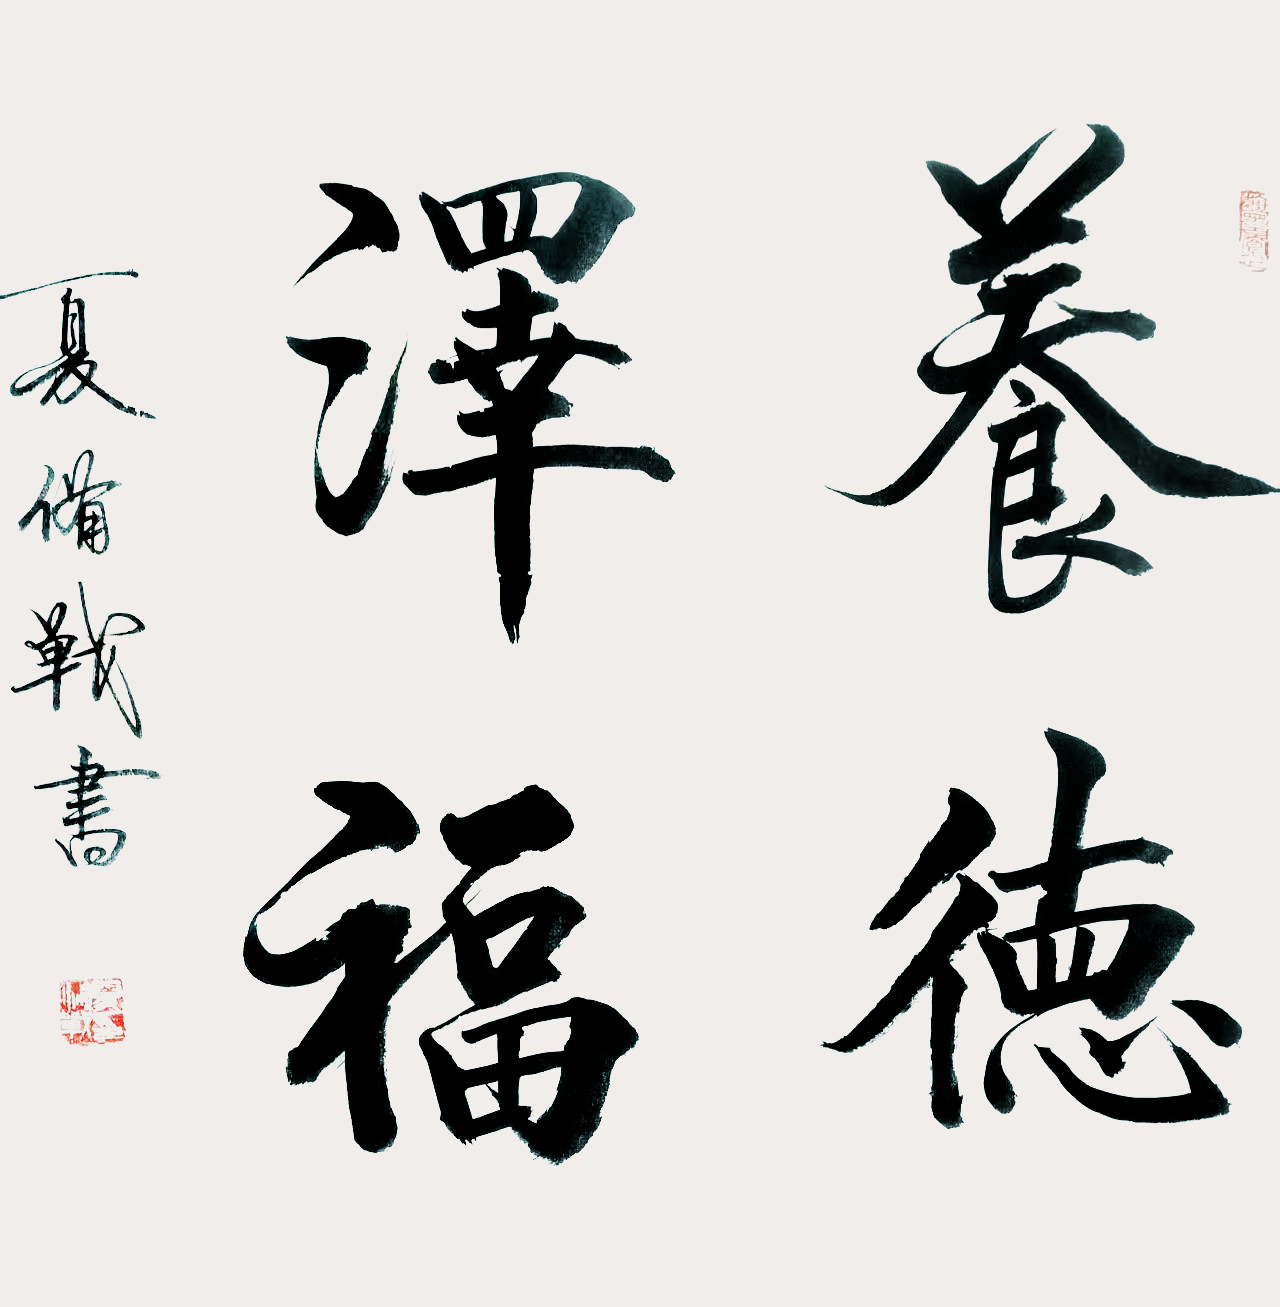 養德
澤福
夏備戰書